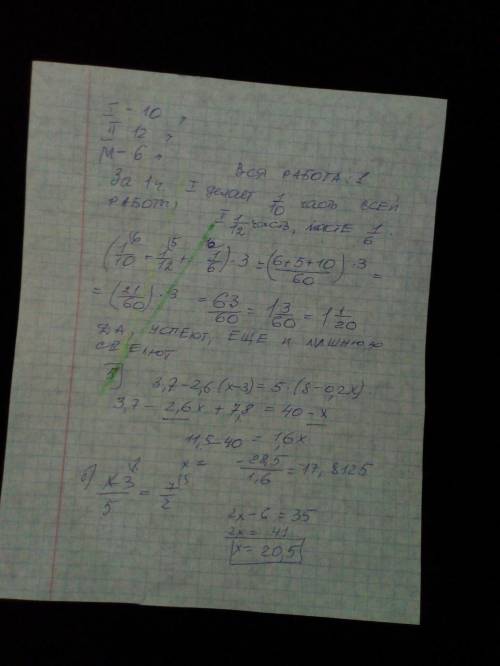 I - 10 ч
II 12 ч
М - 6 ч
Вся работа 1
За 1 ч. I делает 1/10 часть всей работы,
II 1/12 часть, мастер 1/6
(1/10 + 1/12 + 1/6) · 3 = (6+5+10)/60 · 3 =
= (21/60) · 3 = 63/60 = 1 3/60 = 1 1/20
Да, успеют, еще и лишнюю
сделают
3,7 - 2,6(x-3) = 5·(8-0,2x)
3,7 - 2,6x + 7,8 = 40 - x
11,5 - 40 = 1,6x
x = -28,5/1,6 = 17,8125
б) x-3/5 = 7/2
2x - 6 = 35
2x = 41
x = 20,5